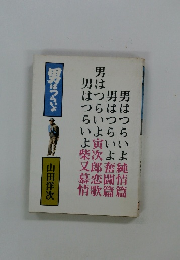 男はつらいよ純情篇
男はつらいよ奮闘篇
男はつらいよ寅次郎恋歌
男はつらいよ柴又慕情
男はつらいよ
山田洋次